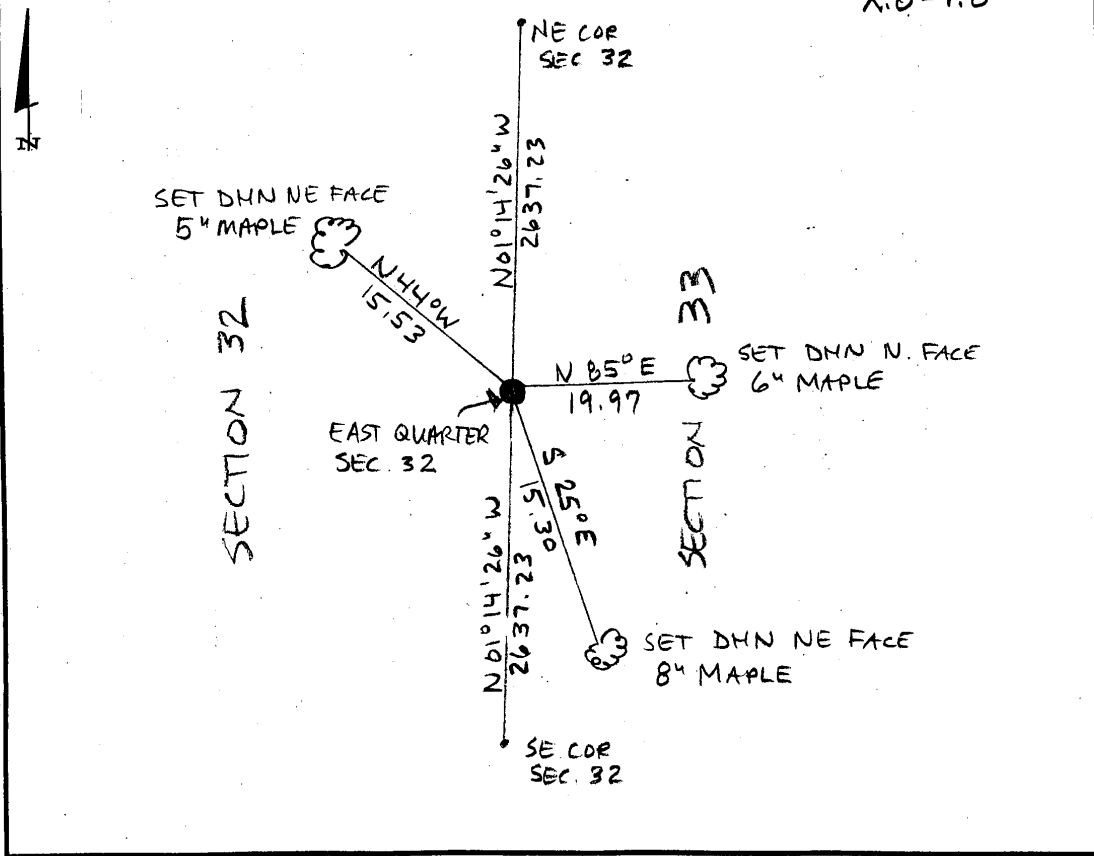 NE COR
SEC 32
N
N01°14'26"W
2637.23
SET DHN NE FACE
5" MAPLE
N44°W
15.53
SECTION 32
SECTION 33
SET DHN N. FACE
6" MAPLE
N 85° E
19.97
EAST QUARTER
SEC. 32
S 25° E
15.30
N01°14'26"W
2637.23
SET DHN NE FACE
8" MAPLE
SE COR
SEC. 32